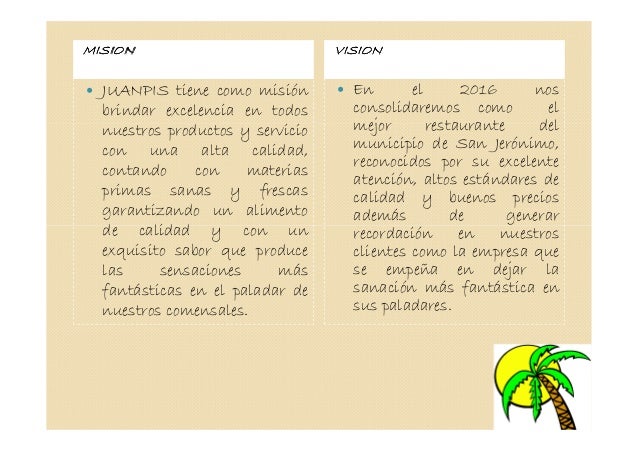 MISION
JUANPIS tiene como misión
brindar excelencia en todos
nuestros productos y servicio
con una alta calidad,
contando con materias
primas sanas y frescas
garantizando un alimento
de calidad y con un
exquisito sabor que produce
las sensaciones más
fantásticas en el paladar de
nuestros comensales.
VISION
En el 2016 nos
consolidaremos como el
mejor restaurante del
municipio de San Jerónimo,
reconocidos por su excelente
atención, altos estándares de
calidad y buenos precios
además de generar
recordación en nuestros
clientes como la empresa que
se empeña en dejar la
sanación más fantástica en
sus paladares.